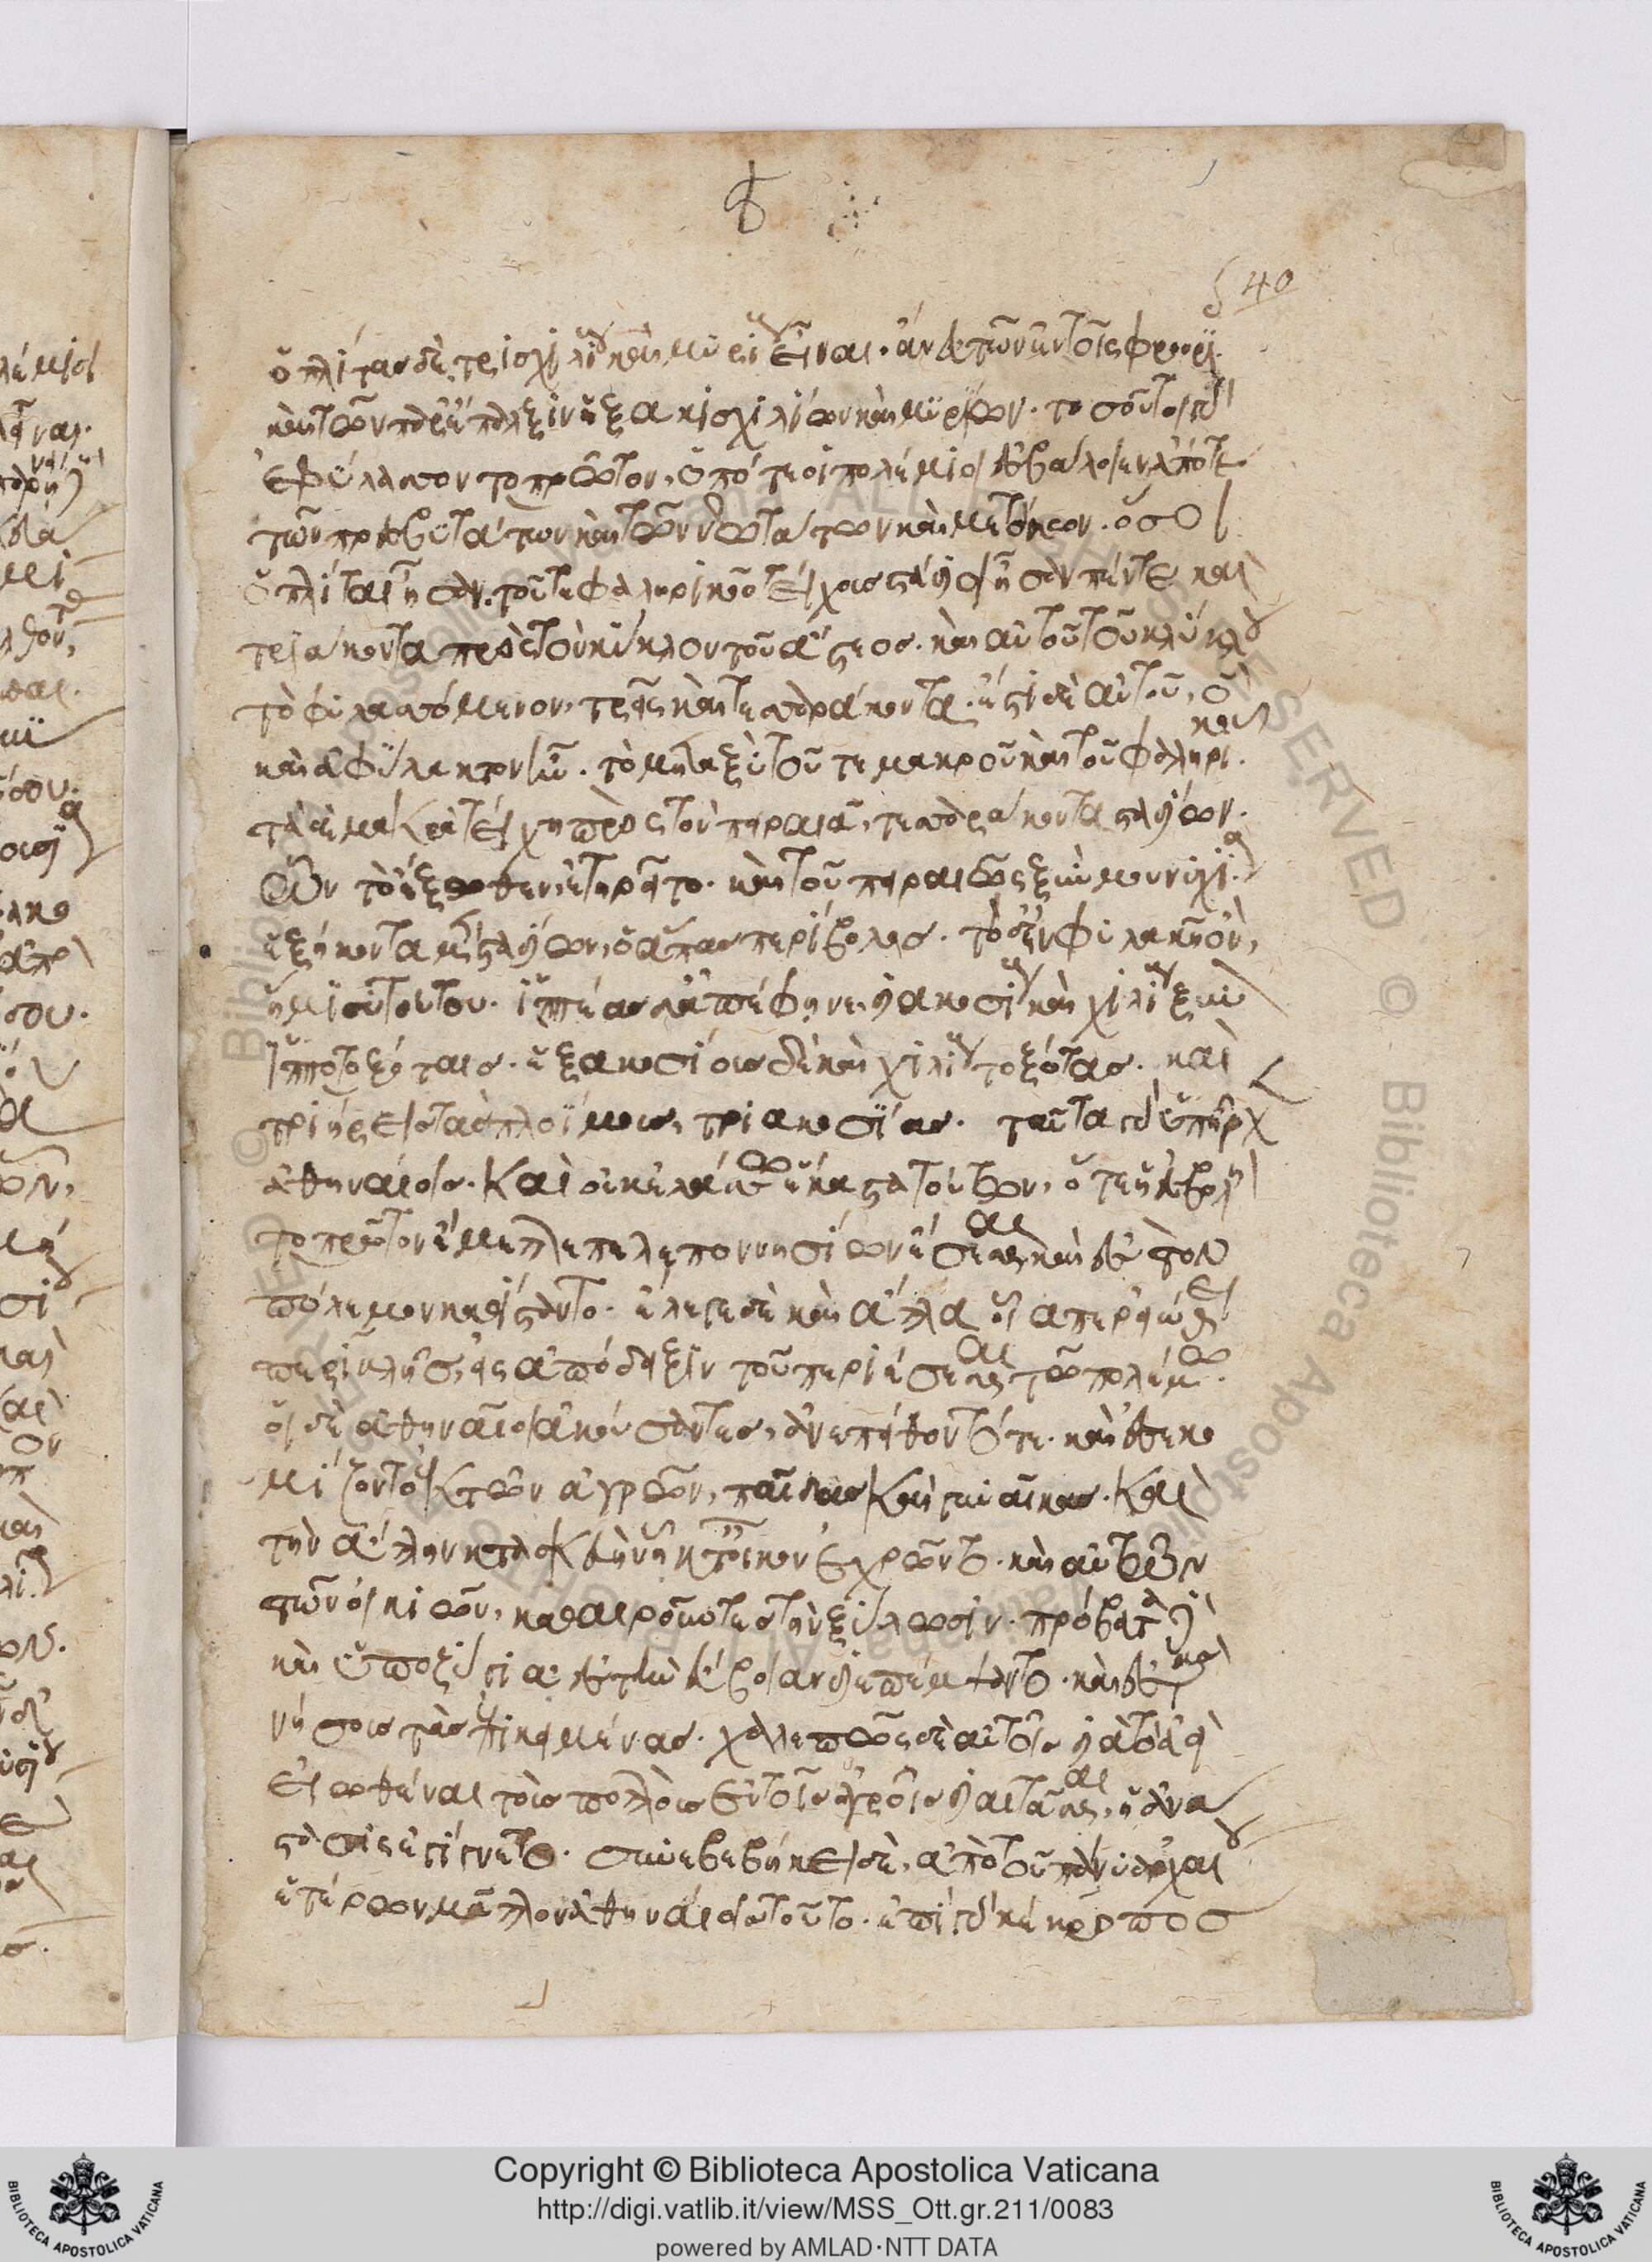 40
ὁπλίτας δὲ, τρισχιλίους καὶ μυρίους εἶναι· ἄνευ τῶν ἐν τοῖς φρουρίοις·
καὶ τῶν παρ' ἔπαλξιν ἑξακισχιλίων καὶ μυρίων· τοσοῦτοι γὰρ
ἐφύλασσον τὸ πρῶτον, ὁπότε οἱ πολέμιοι ἐσβάλοιεν ἀπό τε
τῶν πρεσβυτάτων καὶ τῶν νεωτάτων καὶ μετοίκων. ὅσοι
ὁπλῖται ἦσαν. τοῦ τε φαληρικοῦ τείχους στάδιοι ἦσαν πέντε καὶ
τριάκοντα πρὸς τὸν κύκλον τοῦ ἄστεος. καὶ αὐτοῦ τοῦ κύκλου
τὸ φυλασσόμενον, τρεῖς καὶ τεσσαράκοντα. ἔστι δὲ αὐτοῦ, ὃ
καὶ ἀφύλακτον ἦν. τὸ μεταξὺ τοῦ τε μακροῦ καὶ τοῦ φαληρικοῦ.
τὰ δὲ μακρὰ τείχη πρὸς τὸν πειραιᾶ, τεσσαράκοντα σταδίων.
ὧν τὸ ἔξωθεν, ἐτηρεῖτο. καὶ τοῦ πειραιῶς ξὺν μουνιχίᾳ
ἑξήκοντα μὲν σταδίων, ὁ ἅπας περίβολος. τὸ δ' ἐν φυλακῇ ὂν,
ἥμισυ τούτου. ἱππέας δ' ἀπέφηνε, διακοσίους καὶ χιλίους ξὺν
ἱπποτοξόταις. ἑξακοσίους δὲ καὶ χιλίους τοξότας. καὶ
τριήρεις τὰς πλοΐμους, τριακοσίας. ταῦτα γὰρ ὑπῆρχεν
ἀθηναίοις. καὶ οὐκ ἐλάσσω ἕκαστα τούτων, ὅτε ἡ ἐσβολὴ
τὸ πρῶτον ἔμελλε πελοποννησίων ἔσεσθαι καὶ ἐς τὸν
πόλεμον καθίσταντο. ἔλεγε δὲ καὶ ἄλλα οἷάπερ εἰώθει
περικλῆς, ἐς ἀπόδειξιν τοῦ περιέσεσθαι τῷ πολέμῳ.
οἱ δὲ ἀθηναῖοι ἀκούσαντες, ἀνεπείθοντό τε. καὶ ἐσεκο
μίζοντο ἐκ τῶν ἀγρῶν, παῖδας καὶ γυναῖκας. καὶ
τὴν ἄλλην κατασκευὴν ᾗ κατ' οἶκον ἐχρῶντο. καὶ αὐτῶν
τῶν οἰκιῶν, καθαιροῦντες τὴν ξύλωσιν. πρόβατα δὲ
καὶ ὑποζύγια ἐς τὴν εὔβοιαν διεπέμψαντο. καὶ ἐς τὰς
νήσους τὰς ἐπικειμένας. χαλεπῶς δὲ αὐτοῖς διὰ τὸ ἀεὶ
εἰωθέναι τοὺς πολλοὺς ἐν τοῖς ἀγροῖς διαιτᾶσθαι, ἡ ἀνά
στασις ἐγίγνετο. συνεβεβήκει δὲ, ἀπὸ τοῦ πάνυ ἀρχαίου
ἑτέρων μᾶλλον ἀθηναίοις τοῦτο. ἐπὶ γὰρ κέκροπος
Copyright © Biblioteca Apostolica Vaticana
http://digi.vatlib.it/view/MSS_Ott.gr.211/0083
powered by AMLAD·NTT DATA
BIBLIOTECA APOSTOLICA VATICANA
BIBLIOTECA APOSTOLICA VATICANA